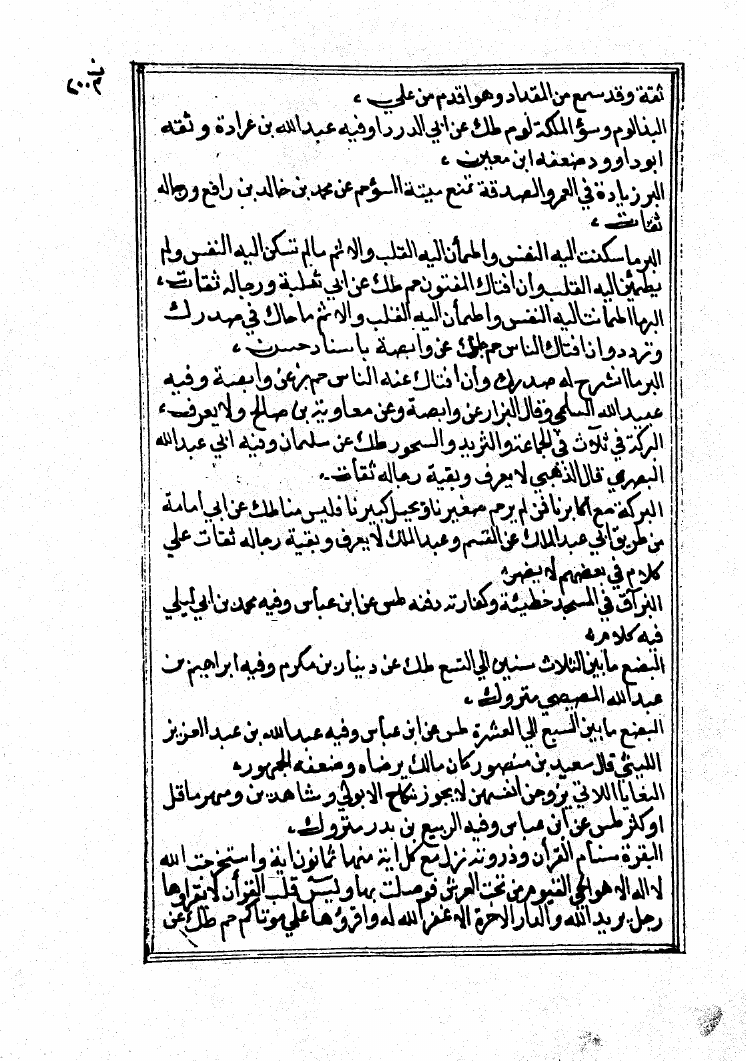 ثقة وقد سمع من المقداد وهو اقدم من علي ،
البذا لوم وسؤ الملكة لوم طك عن ابي الدرداوفيه عبدالله بن عرادة وثقه
ابوداوود ضعفه ابن معين ،
البر زيادة في العمر والصدقة تمنع ميتة السؤحم عن محمد بن خالد بن رافع ورجاله
ثقات ،
البر ماسكنت اليه النفس واطمأن اليه القلب والاثم مالم تسكن اليه النفس ولم
يطمئن اليه القلب وان افتاك المفتون حم طك عن ابي ثعلبة ورجاله ثقات ،
البر ما اطمانت اليه النفس واطمأن اليه القلب والاثم ماحاك في صدرك
وتردد وان افتاك الناس حم طك عن وابصة باسناد حسن ،
البر ما انشرح له صدرك وان أفتاك عنه الناس حم بز عن وابصة وفيه
عبدالله السلمي وقال البزار عن وابصة وعن معاوية بن صالح ولا يعرف ،
البركة في ثلاث في الجماعة والثريد والسحور طك عن سلمان وفيه ابي عبدالله
البصري قال الذهبي لا يعرف وبقية رجاله ثقات ،
البركة مع اكابرنا فمن لم يرحم صغيرنا ويجل كبيرنا فليس منا طك عن ابي أمامة
من طريق ابي عبدالملك عن القسم وعبدالملك لا يعرف وبقية رجاله ثقات علي
كلام في بعضهم لا يضره
البزاق في المسجد خطيئة وكفارته دفنه طس عن ابن عباس وفيه محمد بن ابي ليلي
فيه كلام ه
البضع ما بين الثلاث سنين الي التسع طك عن دينار بن مكرم وفيه ابراهيم بن
عبدالله المصيصي متروك ،
البضع ما بين السبع الي العشرة طس عن ابن عباس وفيه عبدالله بن عبدالعزيز
الليثي قال سعيد بن منصور كان مالك يرضاه وضعفه الجمهور ه
البغايا اللاتي يزوجن انفسهن لا يجوز نكاح الا بولي وشاهدين ومهر ما قل
او كثر طس عن ابن عباس وفيه الربيع بن بدر متروك ،
البقرة سنام القرأن وذروته نزل مع كل اية منها ثمانون اية واستخرجت الله
لا اله الا هو الحي القيوم من تحت العرش فوصلت بها ويس قلب القرأن لا يقراوها
رجل يريد الله والدار الاخرة الا غفر الله له واقرؤها علي موتاكم حم طك عن